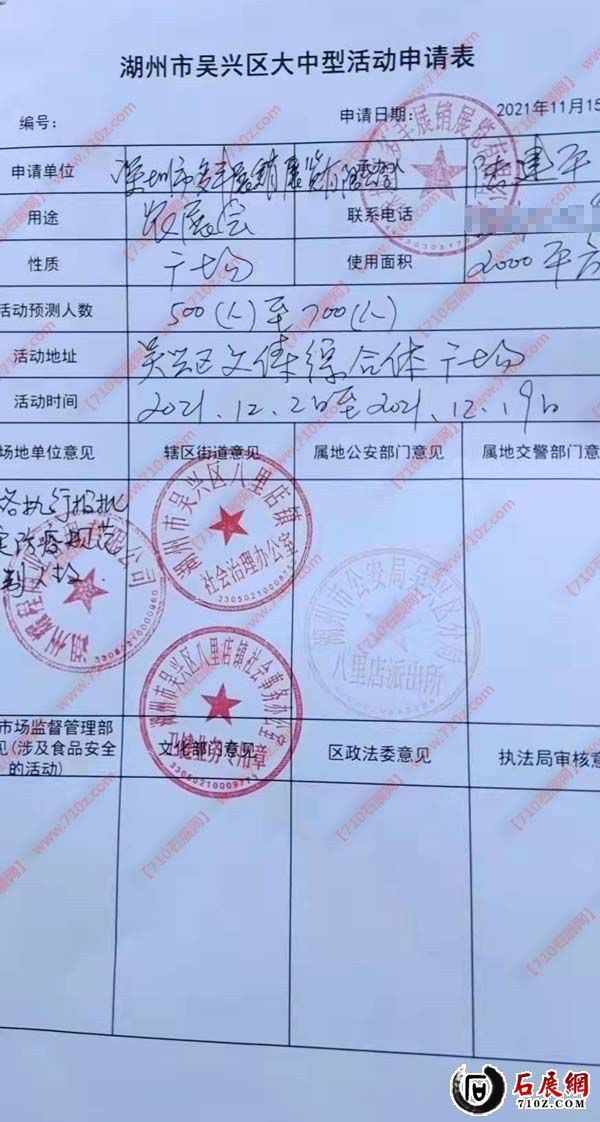 湖州市吴兴区大中型活动申请表
编号:
申请日期: 2021年11月15
申请单位 深圳市多丰展销展览有限公司 陆建平
用途 农展会 联系电话
性质 广场 使用面积 2000平方
活动预测人数 500(人)至700(人)
活动地址 吴兴区文体综合体广场
活动时间 2021.12.2日至2021.12.19日
场地单位意见 辖区街道意见 属地公安部门意见 属地交警部门意见
格执行报批
防疫规范
湖州市吴兴区八里店镇
社会治理办公室
湖州市公安局吴兴区分局
八里店派出所
湖州市吴兴区八里店镇社会事务办公室
卫健业务专用章
33050210009773
市场监督管理部
见(涉及食品安全
的活动)
文化部门意见 区政法委意见 执法局审核意
【710石展网】www.710z.com
石展網
710z.com